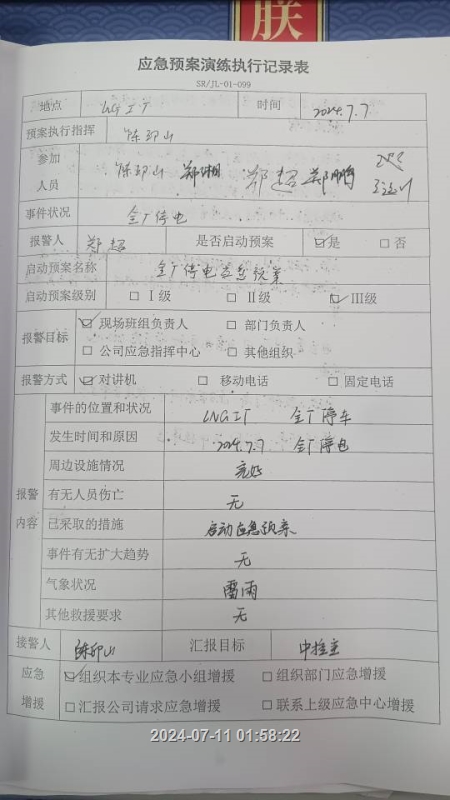 朕
应急预案演练执行记录表
SR/JL-01-099
地点 LNG工厂 时间 2024.7.7
预案执行指挥 陈印山
参加人员 陈印山 郑湘 郑超 郑鹏
事件状况 全厂停电
报警人 郑超 是否启动预案 ☑是 □否
启动预案名称 全厂停电应急预案
启动预案级别 □Ⅰ级 □Ⅱ级 ☑Ⅲ级
报警目标 ☑现场班组负责人 □部门负责人
□公司应急指挥中心 □其他组织
报警方式 ☑对讲机 □移动电话 □固定电话
报警内容
事件的位置和状况 LNG工厂 全厂停车
发生时间和原因 2024.7.7 全厂停电
周边设施情况 完好
有无人员伤亡 无
已采取的措施 启动应急预案
事件有无扩大趋势 无
气象状况 雷雨
其他救援要求 无
接警人 陈印山 汇报目标 中控室
应急增援 ☑组织本专业应急小组增援 □组织部门应急增援
□汇报公司请求应急增援 □联系上级应急中心增援
2024-07-11 01:58:22